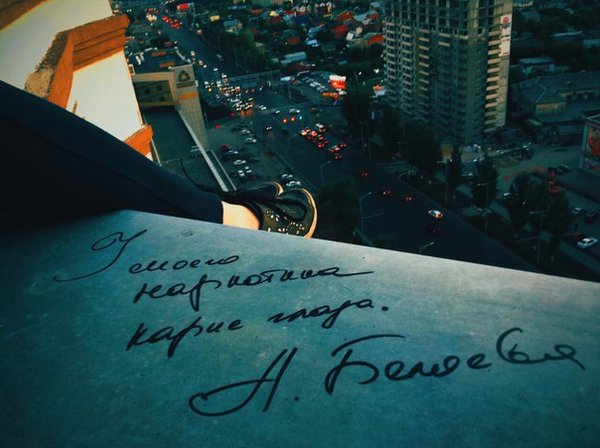 У моего
наркотика
карие глаза.
Н. Беляева